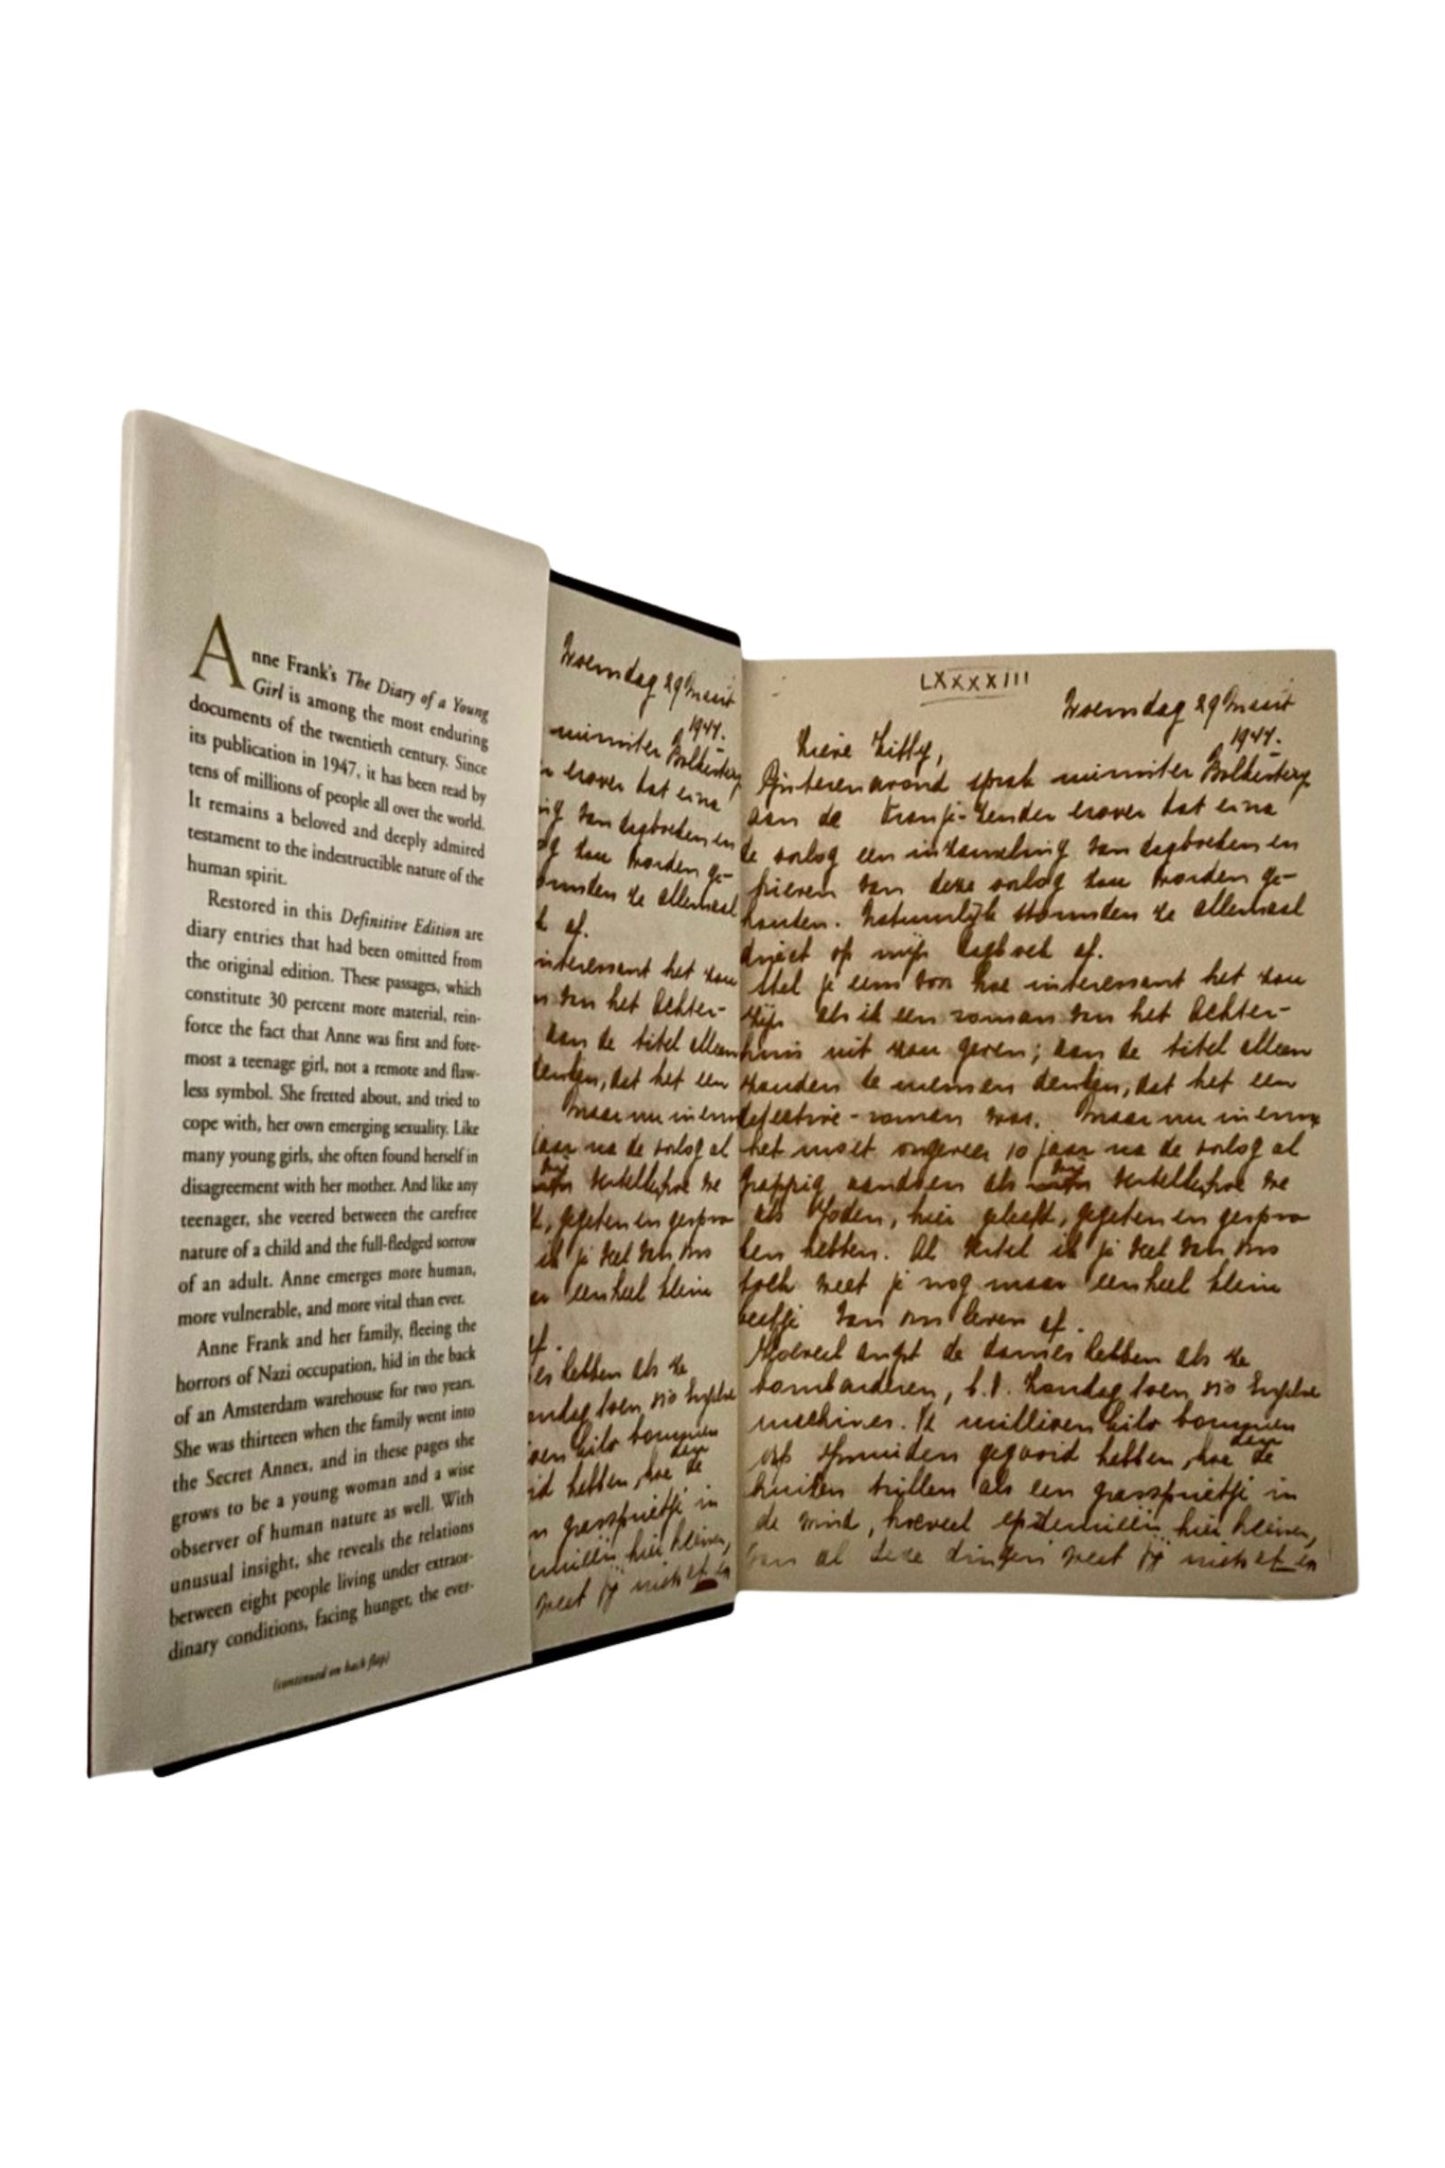 Anne Frank's The Diary of a Young
Girl is among the most enduring
documents of the twentieth century. Since
its publication in 1947, it has been read by
tens of millions of people all over the world.
It remains a beloved and deeply admired
testament to the indestructible nature of the
human spirit.
Restored in this Definitive Edition are
diary entries that had been omitted from
the original edition. These passages, which
constitute 30 percent more material, rein-
force the fact that Anne was first and fore-
most a teenage girl, not a remote and flaw-
less symbol. She fretted about, and tried to
cope with, her own emerging sexuality. Like
many young girls, she often found herself in
disagreement with her mother. And like any
teenager, she veered between the carefree
nature of a child and the full-fledged sorrow
of an adult. Anne emerges more human,
more vulnerable, and more vital than ever.
Anne Frank and her family, fleeing the
horrors of Nazi occupation, hid in the back
of an Amsterdam warehouse for two years.
She was thirteen when the family went into
the Secret Annex, and in these pages she
grows to be a young woman and a wise
observer of human nature as well. With
unusual insight, she reveals the relations
between eight people living under extraor-
dinary conditions, facing hunger, the ever-
(continued on back flap)
Woensdag 29 Maart
1944.
minister Bolkestein
erover dat eind
van dagboeken en
zou worden ge-
ze allemaal
af.
interessant het zou
van het Achter-
aan de titel alleen
denken, dat het een
Maar nu in ernst
jaar na de oorlog al
vertellen, hoe we
gegeten en gespro
ik je veel van ons
een heel klein
af.
hebben als ze
toen 350 Engelse
kilo bommen
hebben, hoe de
grassprietje in
hier heersen,
weet jij niets af en
LXXXXIII
Woensdag 29 Maart
1944.
Lieve Kitty,
Gisterenavond sprak minister Bolkestein
aan de Oranje-zender erover dat eind
de oorlog een inzameling van dagboeken en
brieven van deze oorlog zou worden ge-
houden. Natuurlijk stormden ze allemaal
direct op mijn dagboek af.
Stel je eens voor hoe interessant het zou
zijn als ik een roman van het Achter-
huis uit zou geven; aan de titel alleen
zouden de mensen denken, dat het een
detective-roman was. Maar nu in ernst
het moet ongeveer 10 jaar na de oorlog al
grappig aandoen als wij vertellen, hoe we
als Joden, hier geleefd, gegeten en gespro
ken hebben. Al vertel ik je veel van ons
toch weet je nog maar een heel klein
beetje van ons leven af.
Hoeveel angst de dames hebben als ze
bombarderen, b.v. Zondag toen 350 Engelse
machines ½ millioen kilo bommen
op IJmuiden gegooid hebben, hoe dan de
huizen trillen als een grassprietje in
de wind, hoeveel epidemieën hier heersen,
van al deze dingen weet jij niets af en